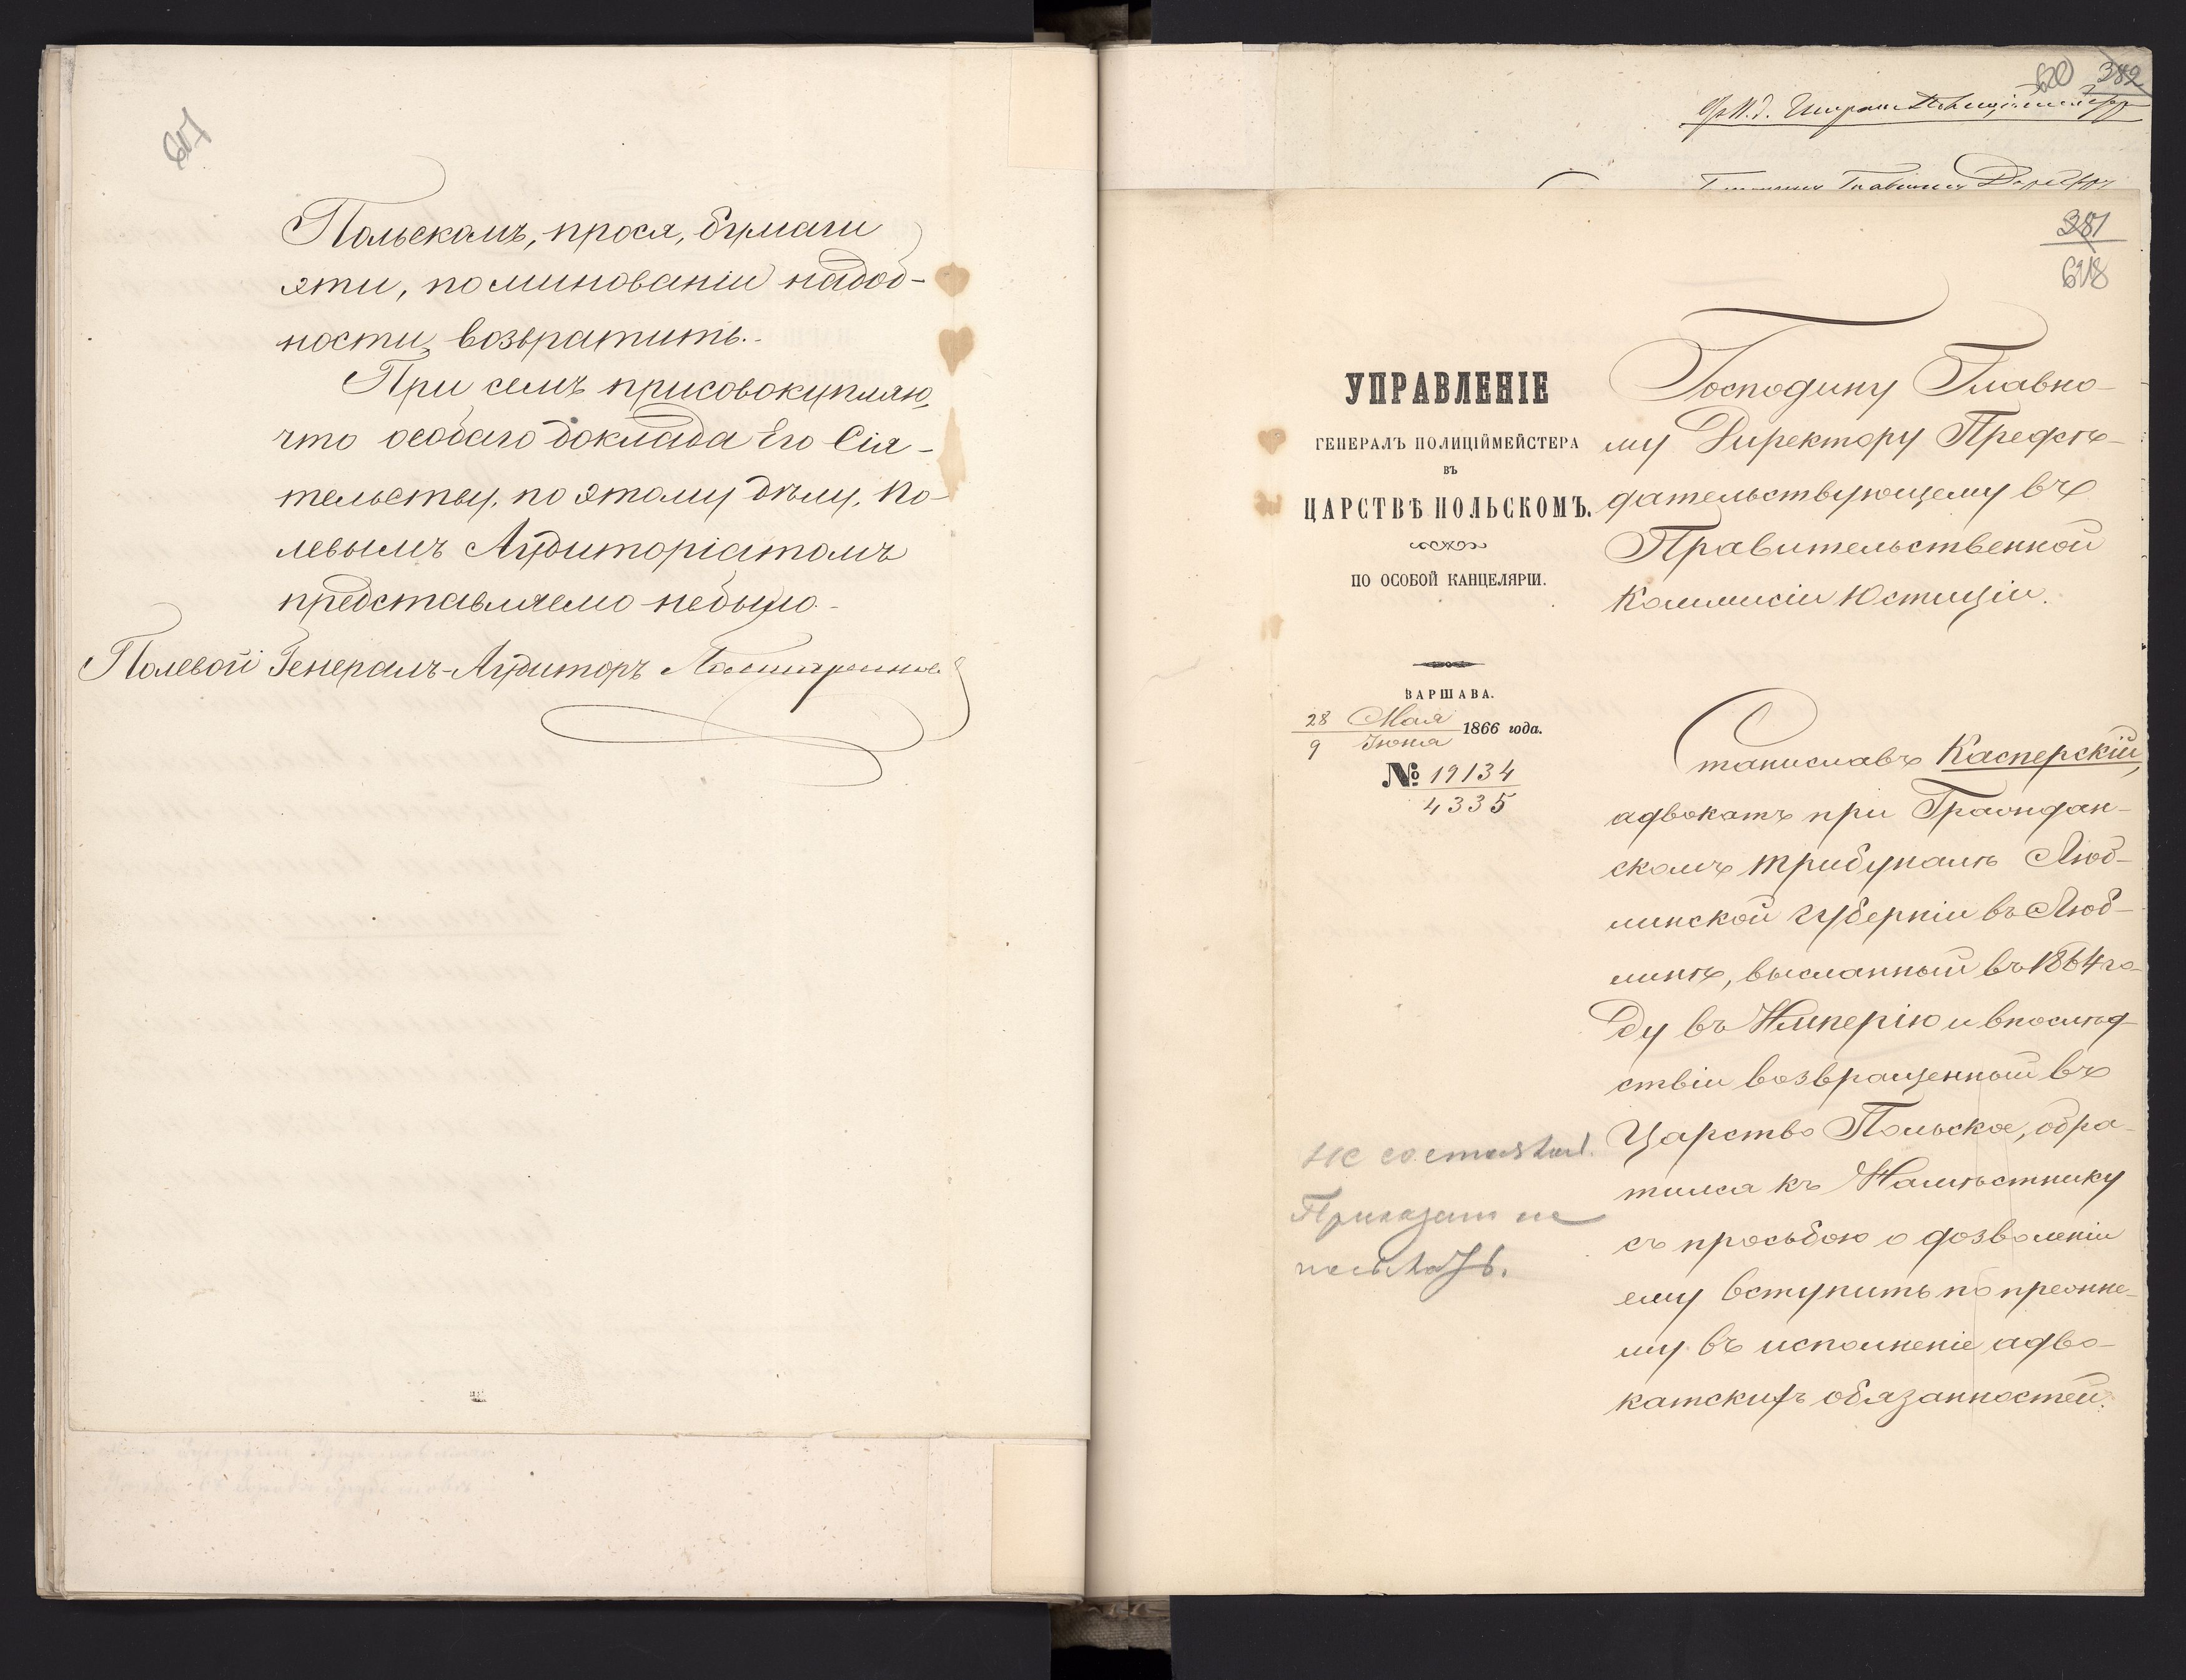 617
Польскомъ, прося, бумаги
эти, по минованіи надоб-
ности, возвратить.-
При семъ присовокупляю,
что особаго доклада Его Сія-
тельству, по этому дѣлу, По-
левымъ Аудиторіатомъ
представляемо небыло.-
Полевой Генералъ-Аудиторъ
620 382
381
618
УПРАВЛЕНІЕ
ГЕНЕРАЛЪ ПОЛИЦІЙМЕЙСТЕРА
ВЪ
ЦАРСТВѢ ПОЛЬСКОМЪ.
ПО ОСОБОЙ КАНЦЕЛЯРІИ.
ВАРШАВА.
28 Мая
9 Іюня 1866 года.
№ 19134
4335
Господину Главно-
му Директору Предсѣ-
дательствующему въ
Правительственной
Коммисіи Юстиціи.
Станиславъ Касперскій,
адвокатъ при Граждан-
скомъ трибуналѣ Люб-
линской губерніи въ Люб-
линѣ, высланный въ 1864 го-
ду въ Имперію и впослѣд-
ствіи возвращенный въ
Царство Польское, обра-
тился къ Намѣстнику
съ просьбою о дозволеніи
ему вступить по прежне-
му въ исполненіе адво-
катскихъ обязанностей.
не
не